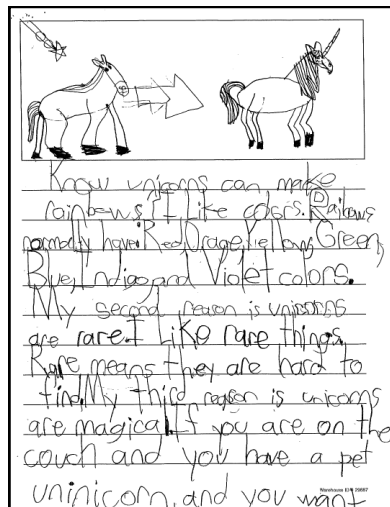 Know unicorns can make
rainbows. I Like colors. Rainbows
normally have: Red, Orage, Yellow, Green,
Blue, Indigo, and Violet colors.
My second reason is unicorns
are rare. I Like rare things.
Rare means they are hard to
find. My third reason is unicorns
are magical. If you are on the
couch and you have a pet
uninicorn, and you want
Warehouse ID# 29887